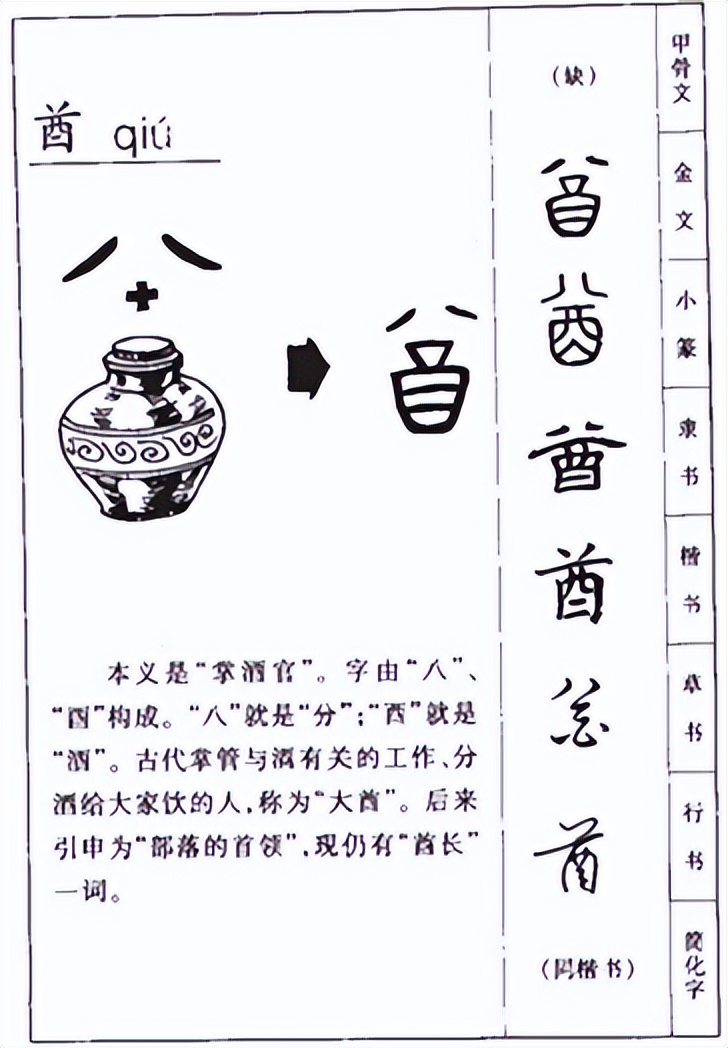 酋 qiú
本义是“掌酒官”。字由“八”、
“酉”构成。“八”就是“分”；“酉”就是
“酒”。古代掌管与酒有关的工作、分
酒给大家饮的人，称为“大酋”。后来
引申为“部落的首领”，现仍有“酋长”
一词。
（缺）
酋
酋
酋
酋
酋
酋
（同楷书）
甲骨文
金文
小篆
隶书
楷书
草书
行书
简化字